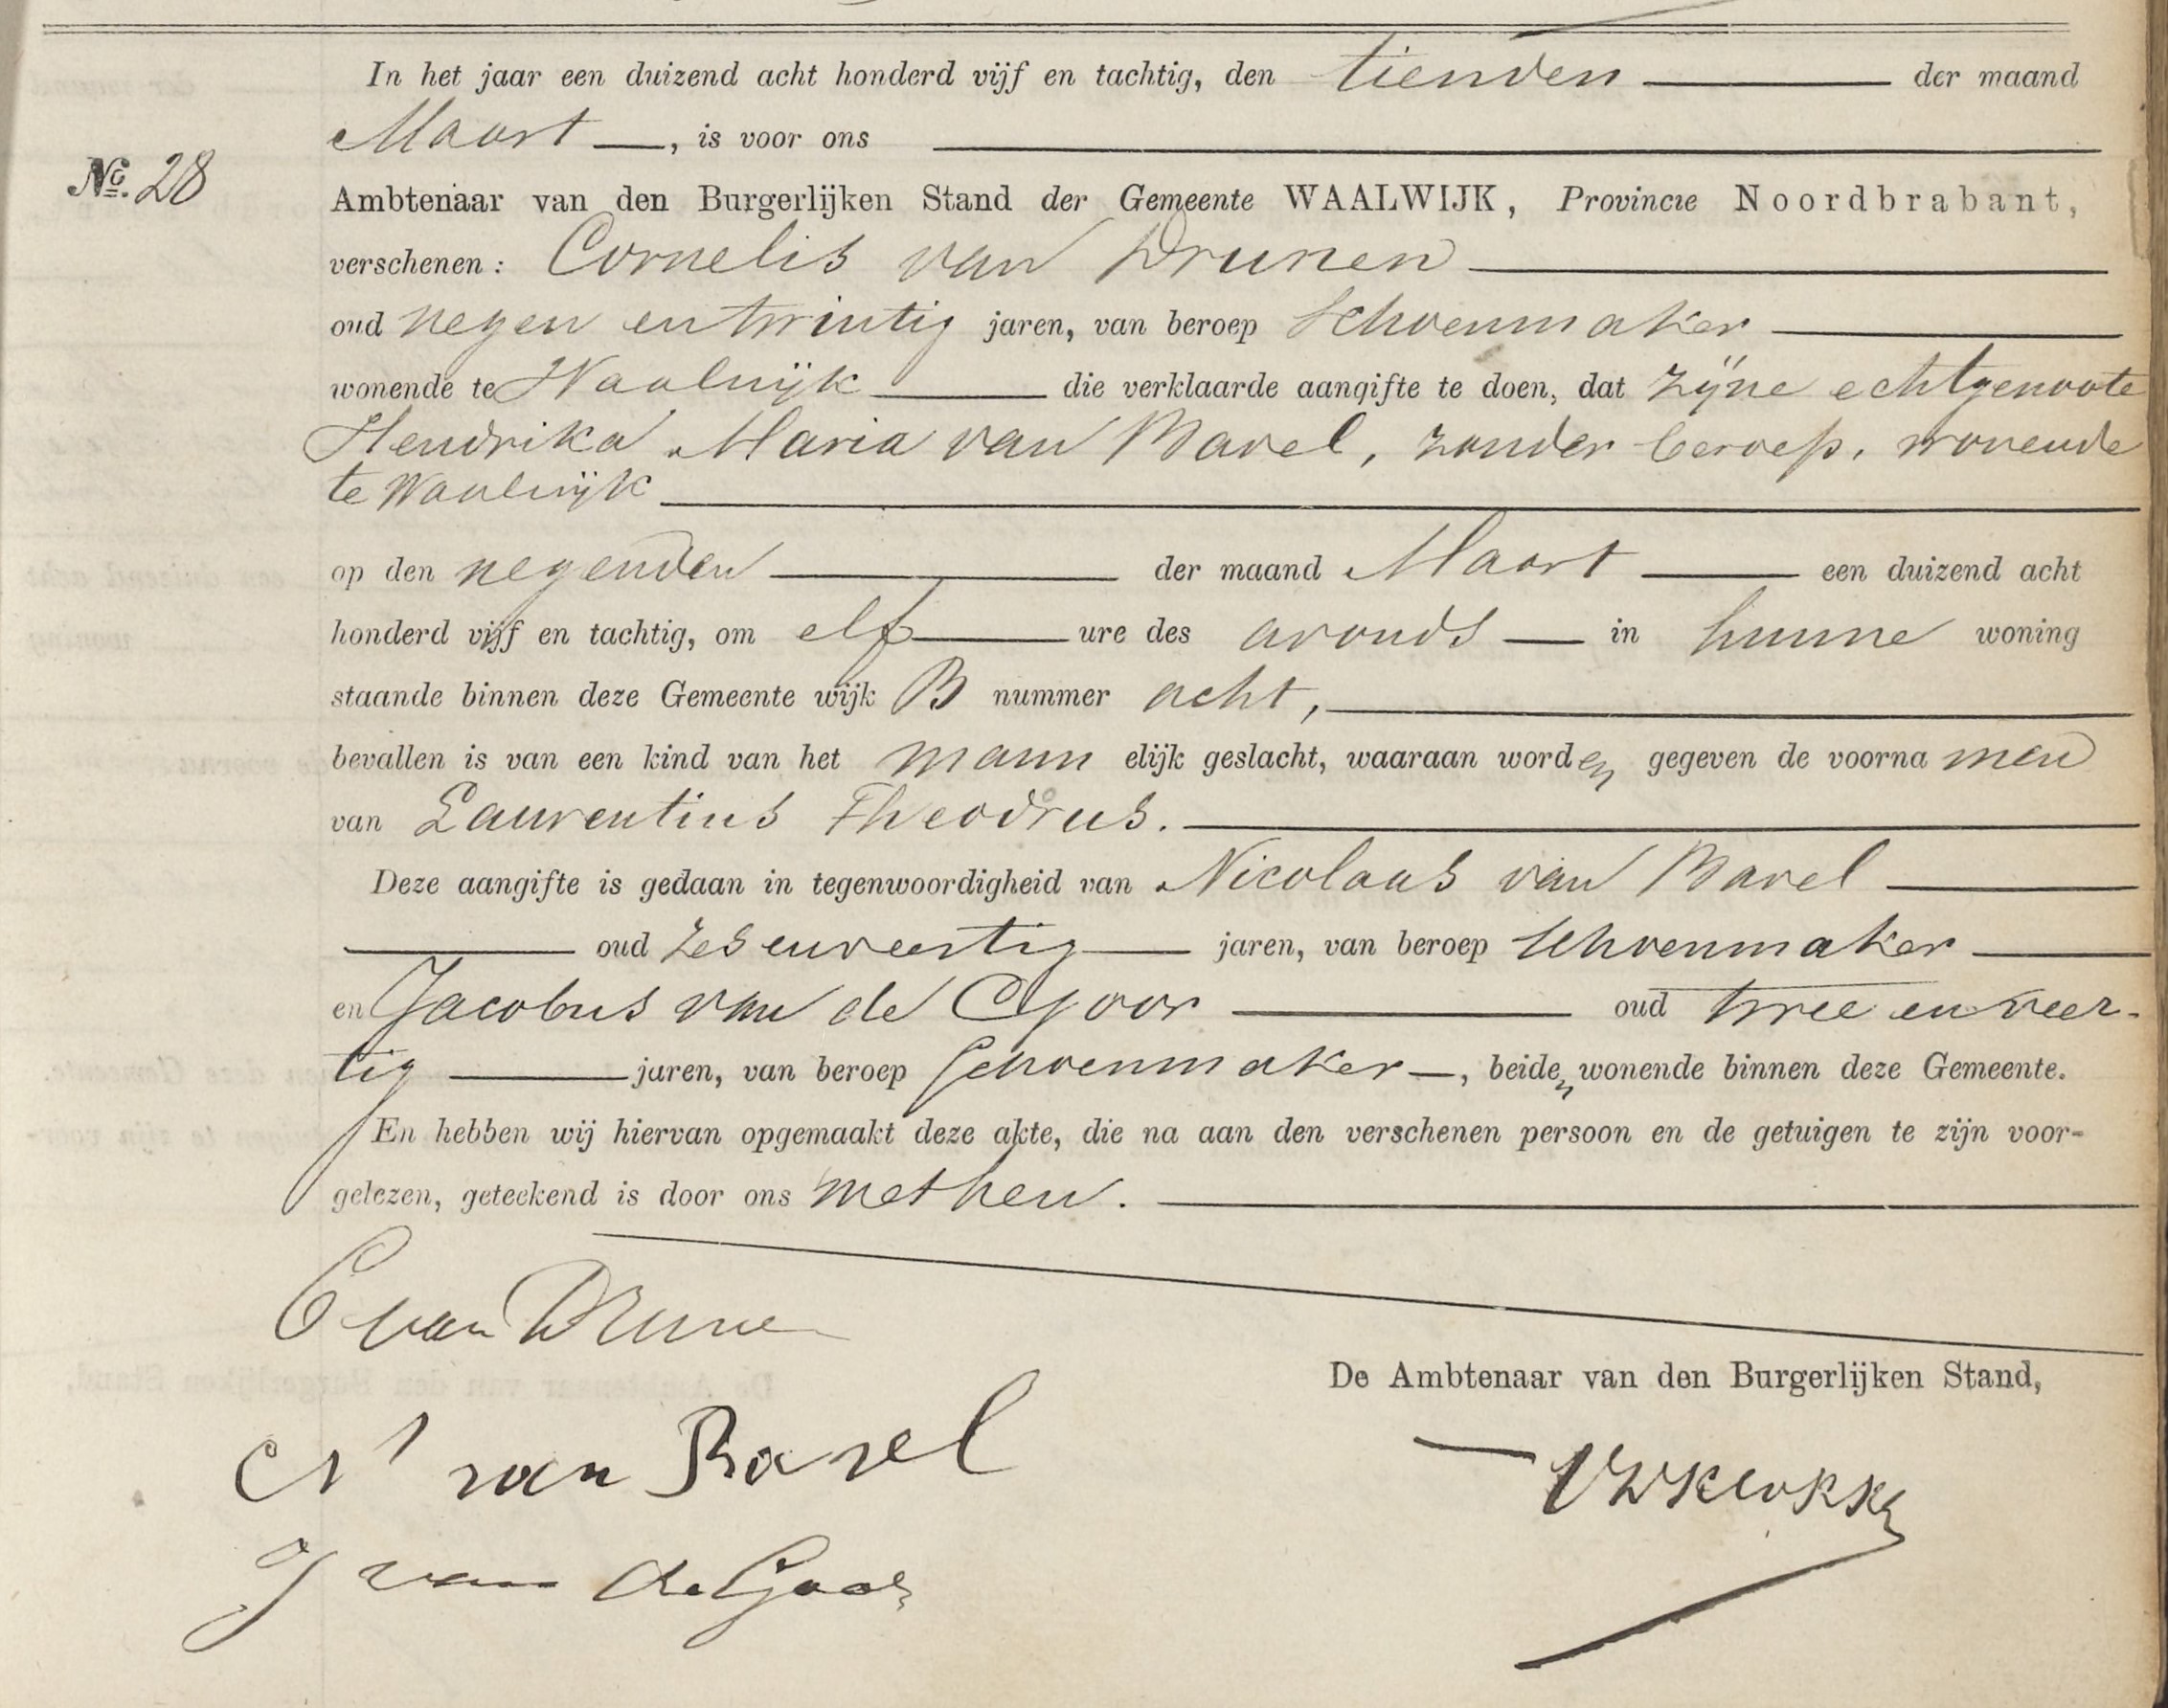 In het jaar een duizend acht honderd vijf en tachtig, den tienden der maand
Maart, is voor ons
No. 28
Ambtenaar van den Burgerlijken Stand der Gemeente WAALWIJK, Provincie Noordbrabant,
verschenen: Cornelis van Drunen
oud negen en twintig jaren, van beroep Schoenmaker
wonende te Waalwijk die verklaarde aangifte te doen, dat zijne echtgenoote
Hendrika Maria van Bavel, zonder beroep, wonende
te Waalwijk
op den negenden der maand Maart een duizend acht
honderd vijf en tachtig, om elf ure des avonds in hunne woning
staande binnen deze Gemeente wijk B nummer acht,
bevallen is van een kind van het mann elijk geslacht, waaraan worden gegeven de voorna men
van Laurentius Theodrus.
Deze aangifte is gedaan in tegenwoordigheid van Nicolaas van Bavel
oud zes en veertig jaren, van beroep Schoenmaker
en Jacobus van de Goor oud twee en veer-
tig jaren, van beroep Schoenmaker, beiden wonende binnen deze Gemeente.
En hebben wij hiervan opgemaakt deze akte, die na aan den verschenen persoon en de getuigen te zijn voor-
gelezen, geteekend is door ons met hen.
C van Drunen
De Ambtenaar van den Burgerlijken Stand,
N van Bavel
J van de Goor